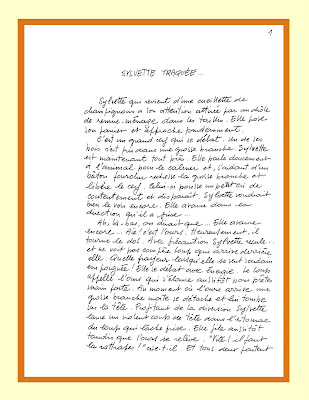 1
SYLVETTE TRAQUÉE...
Sylvette qui revient d'une cueillette de
champignons a son attention attirée par un drôle
de remue-ménage dans les taillis. Elle pose
son panier et approche prudemment.
C'est un grand cerf qui se débat. Un de ses
bois s'est pris dans une grosse branche. Sylvette
est maintenant tout près. Elle parle doucement
à l'animal pour le calmer et, s'aidant d'un
bâton fourchu redresse la grosse branche et
libère le cerf. Celui-ci pousse un petit cri de
contentement et disparaît. Sylvette voudrait
bien le voir encore. Elle avance dans la
direction qu'il a prise...
Ah, là-bas, on dirait que... Elle avance
encore... Aïe ! c'est l'ours. Heureusement, il
tourne le dos. Avec précaution Sylvette recule...
et ne voit pas son loup qui arrive derrière
elle. Quelle frayeur lorsqu'elle se sent soudain
empoignée ! Elle se débat avec énergie. Le loup
appelle l'ours qui s'élance aussitôt pour prêter
main forte. Au moment où l'ours arrive une
grosse branche morte se détache et lui tombe
sur la tête. Profitant de la diversion Sylvette
lance un violent coup de tête dans l'estomac
du loup qui lâche prise. Elle file aussitôt
tandis que l'ours se relève. "Vite ! il faut
la rattraper !" crie-t-il. Et tous deux partent